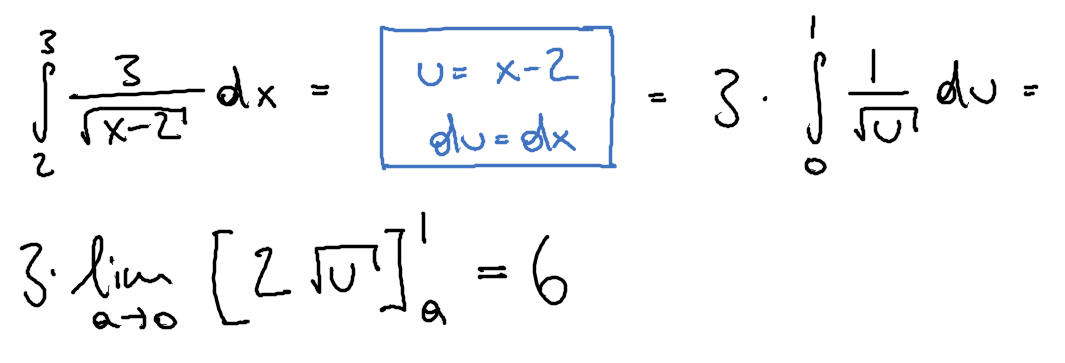 ∫₂³ 3/√(x-2) dx = u = x-2 du = dx = 3 · ∫₀¹ 1/√u du =
3 · lim a→0 [2√u]ₐ¹ = 6